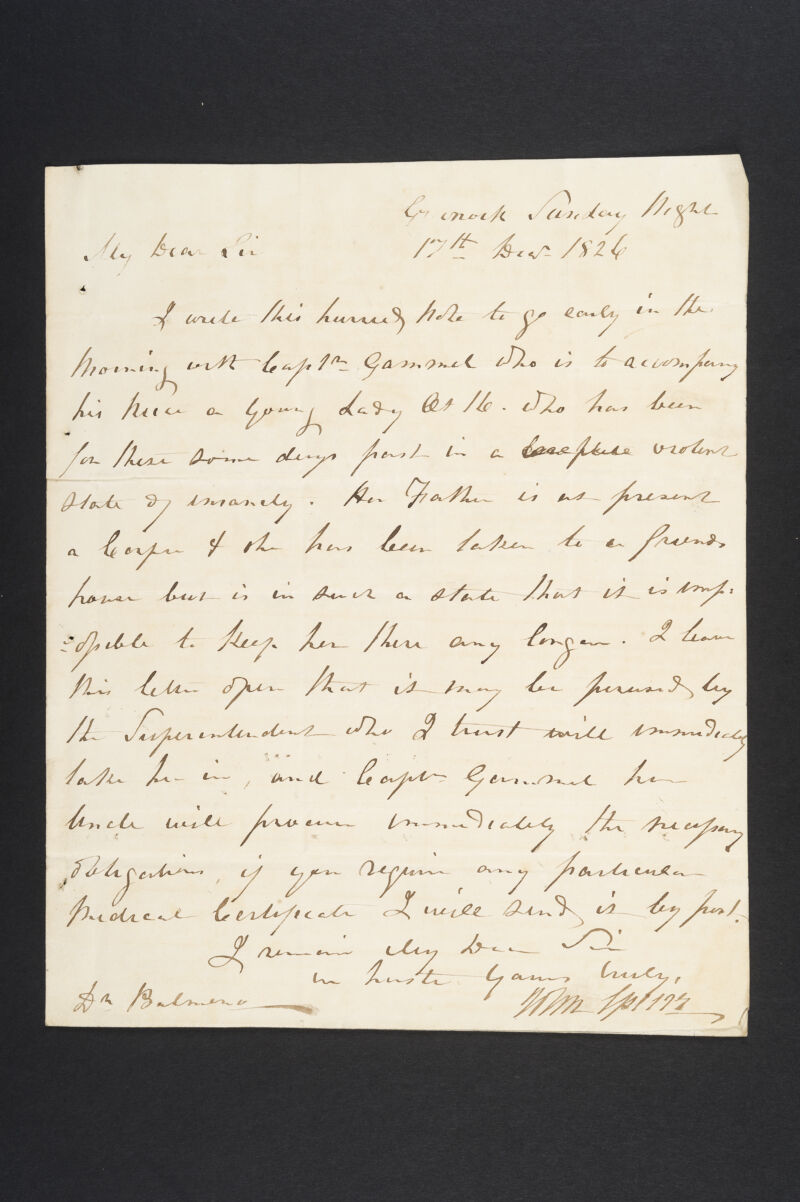 Greenock Sunday Night
17th Decr 1826
My Dear Sir
I write this hurried Note to go early in the
Morning with Captn Gammel who is to accompany
his Niece a Young Lady Æt 16. who has been
for these some days past in a violent
state of insanity. Her Father is at present
a Corpse & she has been taken to a friends
house but is in such a state that it is imp:
:ossible to keep her there any longer. I leave
this letter open that it may be perused by
the Superintendent who I trust will immediately
take her in, and Captn Gammel her
Uncle will procure immediately the necessary
obligations, if you require any particular
Medical Certificate I will send it by post.
I remain My Dear Sir
in haste Yours truly,
Dr Balmeno
John